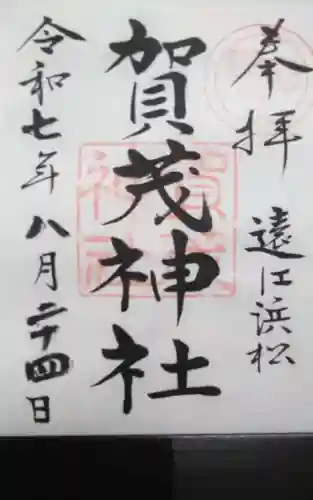 奉拝 遠江浜松
賀茂神社
令和七年八月二十四日
賀茂神社